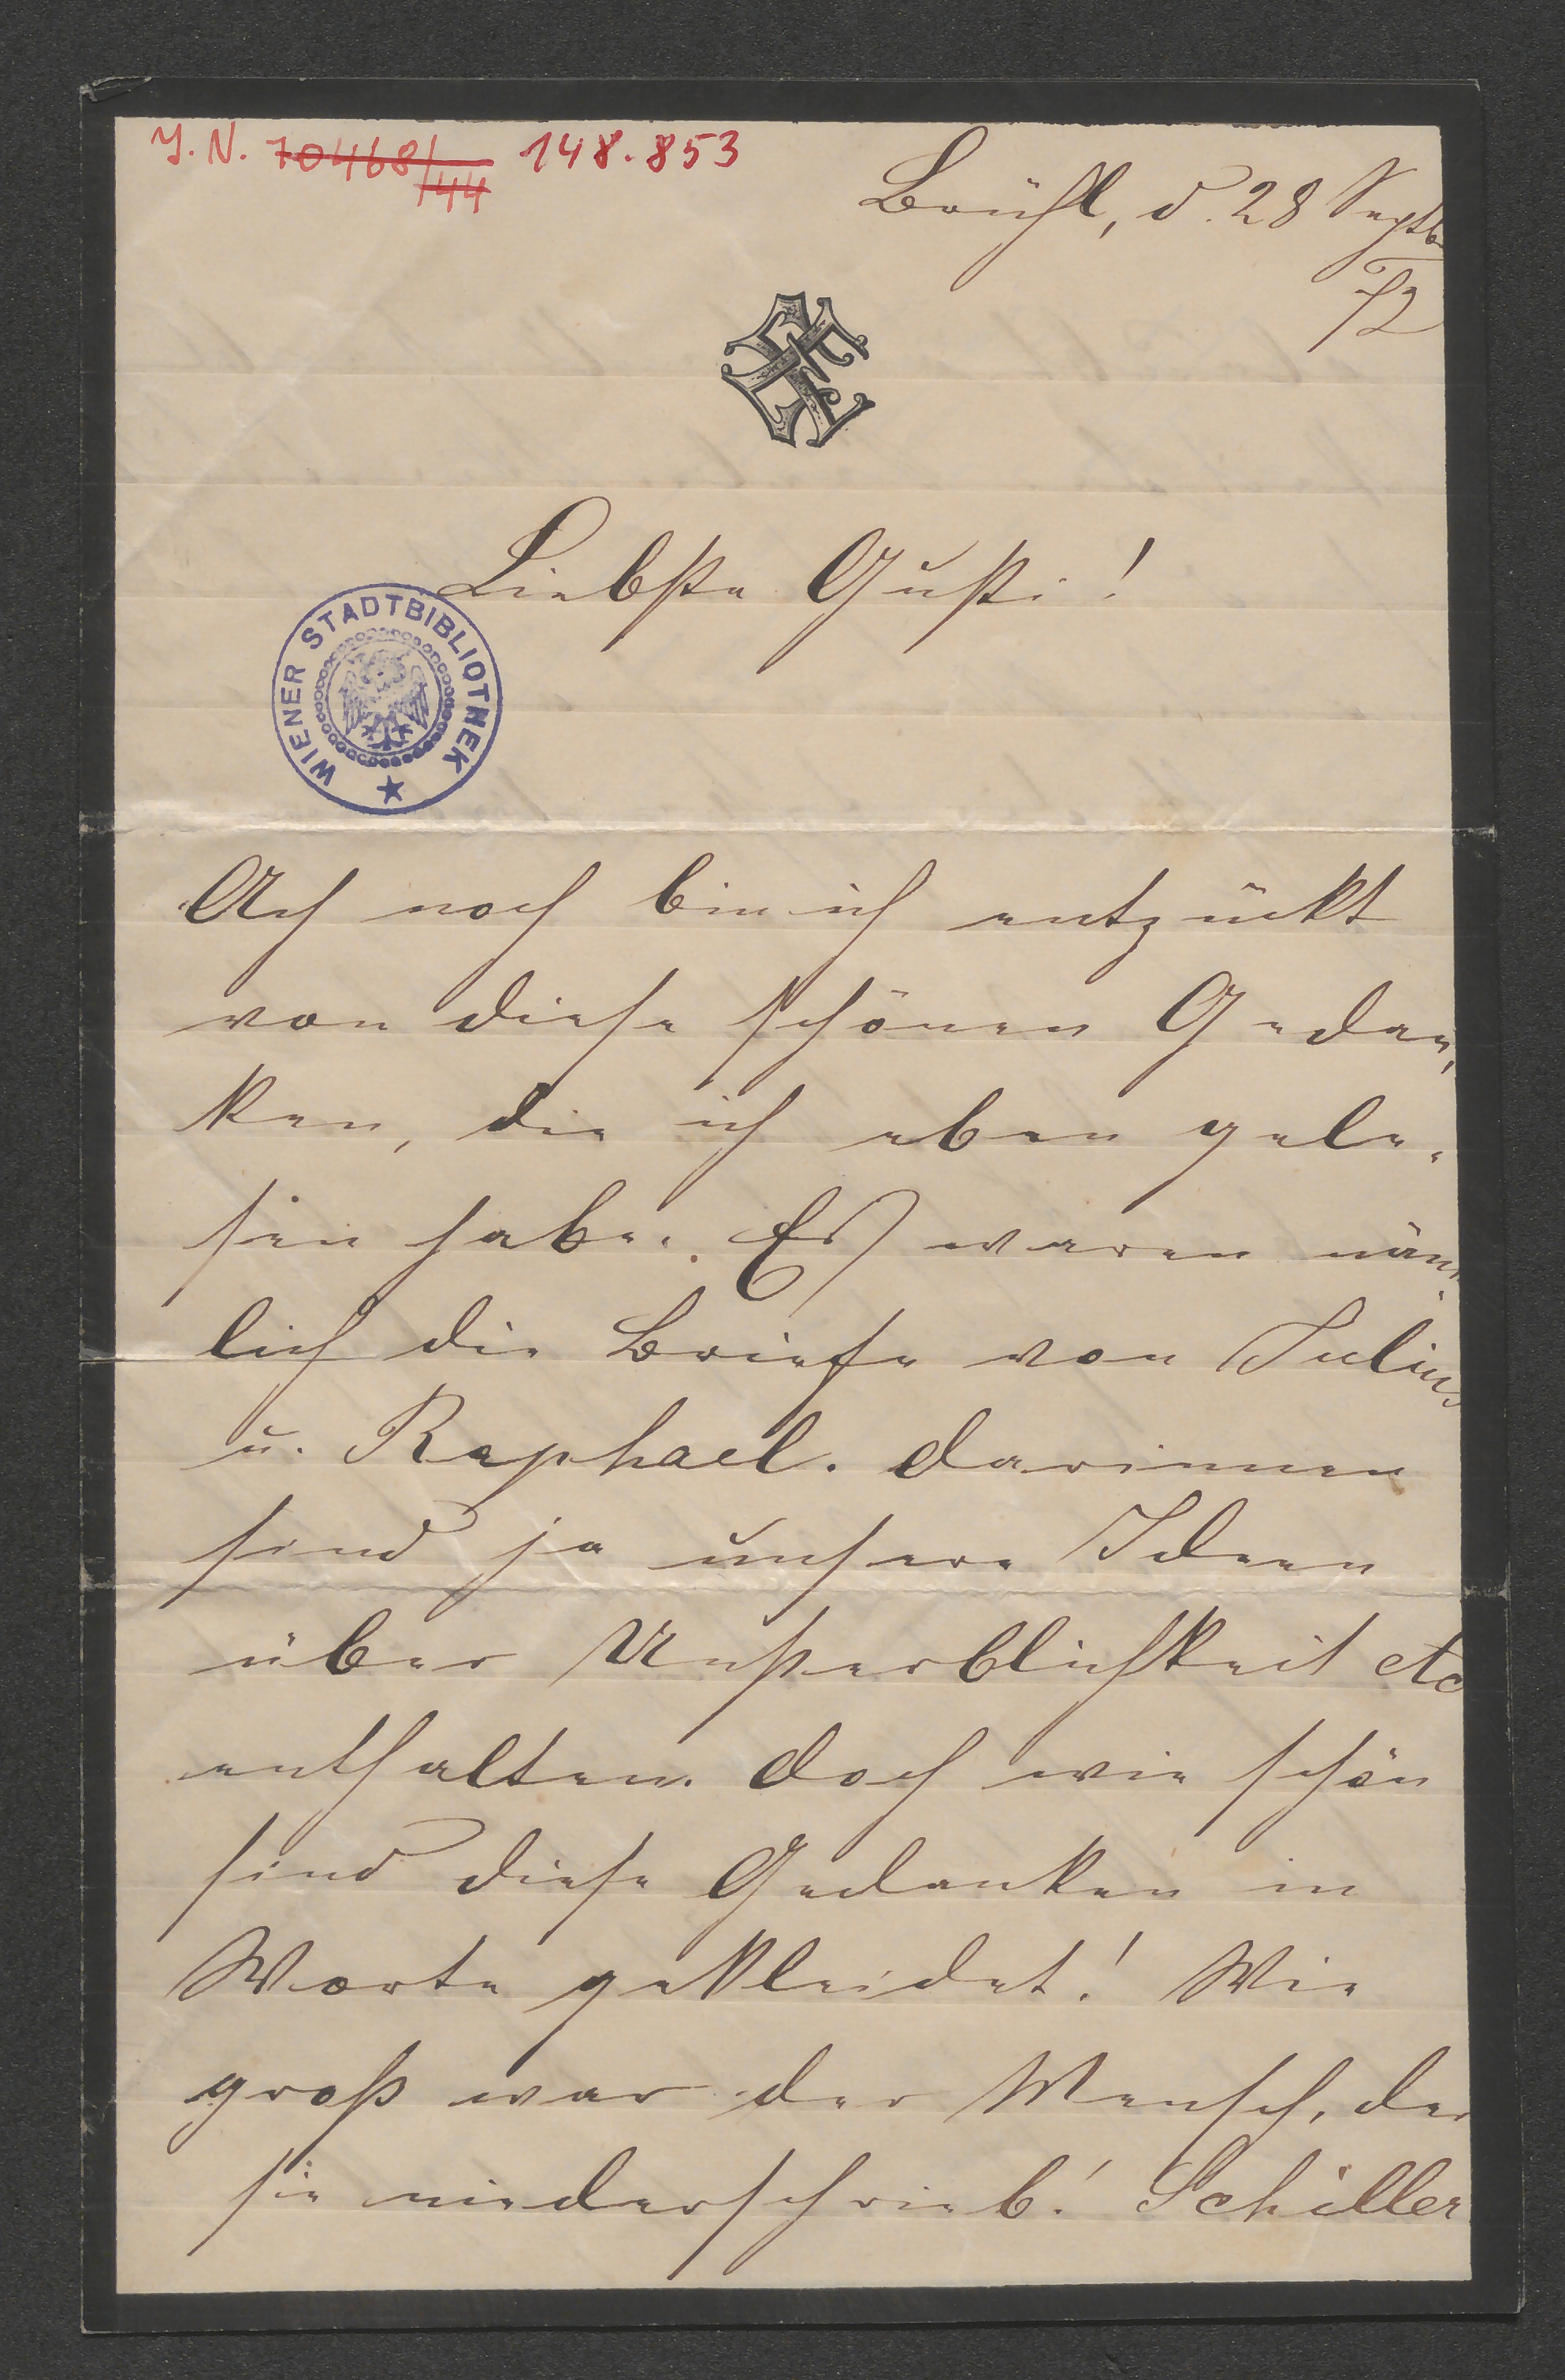 J. N. 70468/44 148.853
Brühl, d. 28 Septb
72
Liebste Gusti!
WIENER STADTBIBLIOTHEK
Ach noch bin ich entzückt
von diese schönen Gedan,
ken, die ich eben gele,
sen habe. Es waren näm,
lich die Briefe von Julius
u. Raphael. darinnen
sind ja unsere Ideen
über Unsterblichkeit etc
enthalten. doch wie schön
sind diese Gedanken in
Worte gekleidet! Wie
groß war der Mensch, der
sie niederschrieb! Schiller